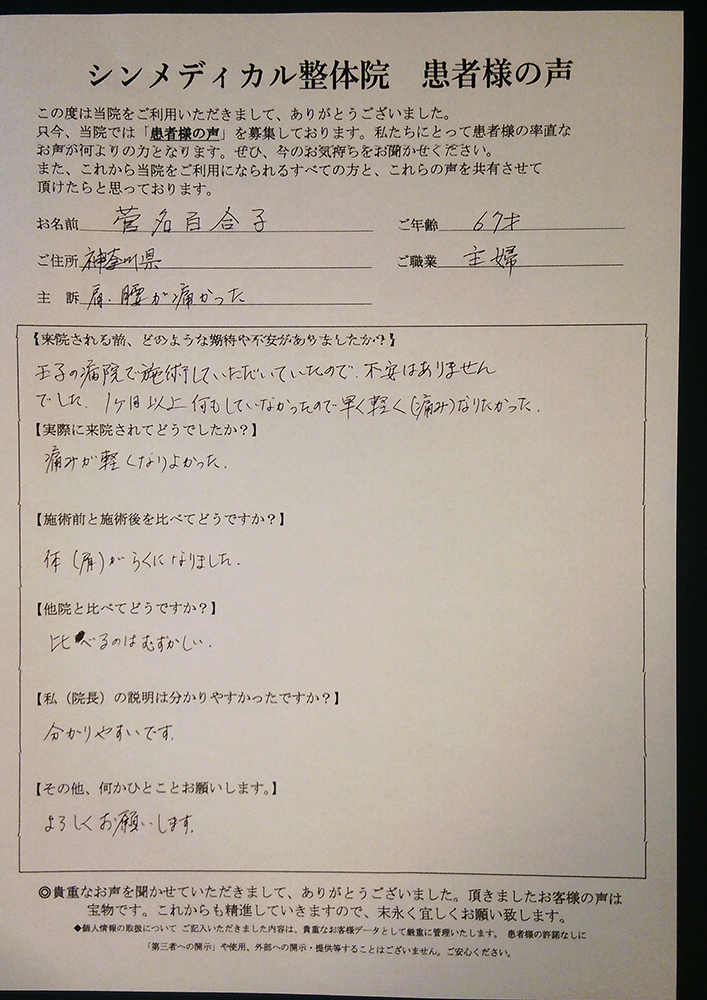 シンメディカル整体院　患者様の声
この度は当院をご利用いただきまして、ありがとうございました。
只今、当院では「患者様の声」を募集しております。私たちにとって患者様の率直な
お声が何よりの力となります。ぜひ、今のお気持ちをお聞かせください。
また、これから当院をご利用になられるすべての方と、これらの声を共有させて
頂けたらと思っております。
お名前 菅名百合子 ご年齢 67才
ご住所 神奈川県 ご職業 主婦
主　訴 肩、腰が痛かった
【来院される前、どのような期待や不安がありましたか？】
王子の病院で施術していただいていたので、不安はありません
でした。1ヶ月以上何もしていなかったので早く軽く(痛み)なりたかった。
【実際に来院されてどうでしたか？】
痛みが軽くなりよかった。
【施術前と施術後を比べてどうですか？】
体（肩）がらくになりました。
【他院と比べてどうですか？】
比べるのはむずかしい。
【私（院長）の説明は分かりやすかったですか？】
分かりやすいです。
【その他、何かひとことお願いします。】
よろしくお願いします。
◎貴重なお声を聞かせていただきまして、ありがとうございました。頂きましたお客様の声は
宝物です。これからも精進していきますので、末永く宜しくお願い致します。
◆個人情報の取扱について ご記入いただきました内容は、貴重なお客様データとして厳重に管理いたします。 患者様の許諾なしに
「第三者への開示」や使用、外部への開示・提供等することはございません。ご安心ください。